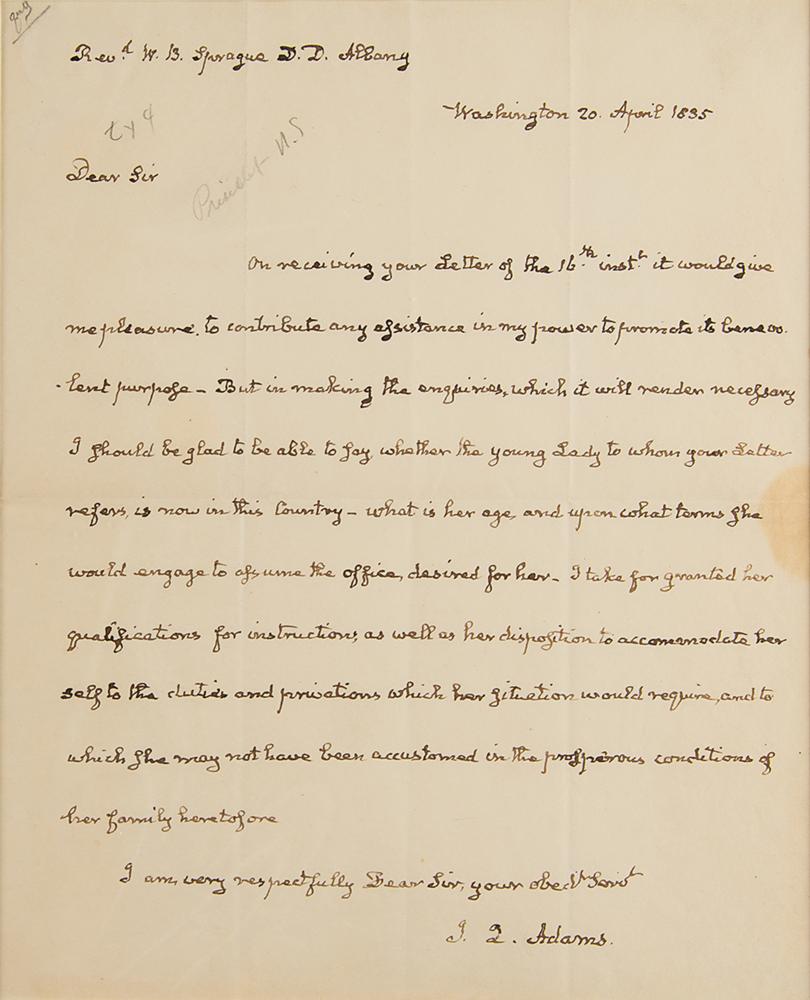 Rev.d W. B. Sprague D. D. Albany
Washington 20. April 1835
Dear Sir
President U.S
On receiving your Letter of the 16.th inst.t it would give
me pleasure, to contribute any assistance in my power to promote its benevo.
-lent purpose - But in making the enquiries, which it will render necessary
I should be glad to be able to say, whether the young Lady to whom your Letter
refers, is now in this Country - what is her age, and upon what terms she
would engage to assume the office, desired for her - I take for granted her
qualifications for instruction, as well as her disposition to accommodate her
self to the duties and privations which her situation would require, and to
which she may not have been accustomed in the prosperous conditions of
her family heretofore
I am, very respectfully Dear Sir, your obedt Servt
J. Q. Adams.